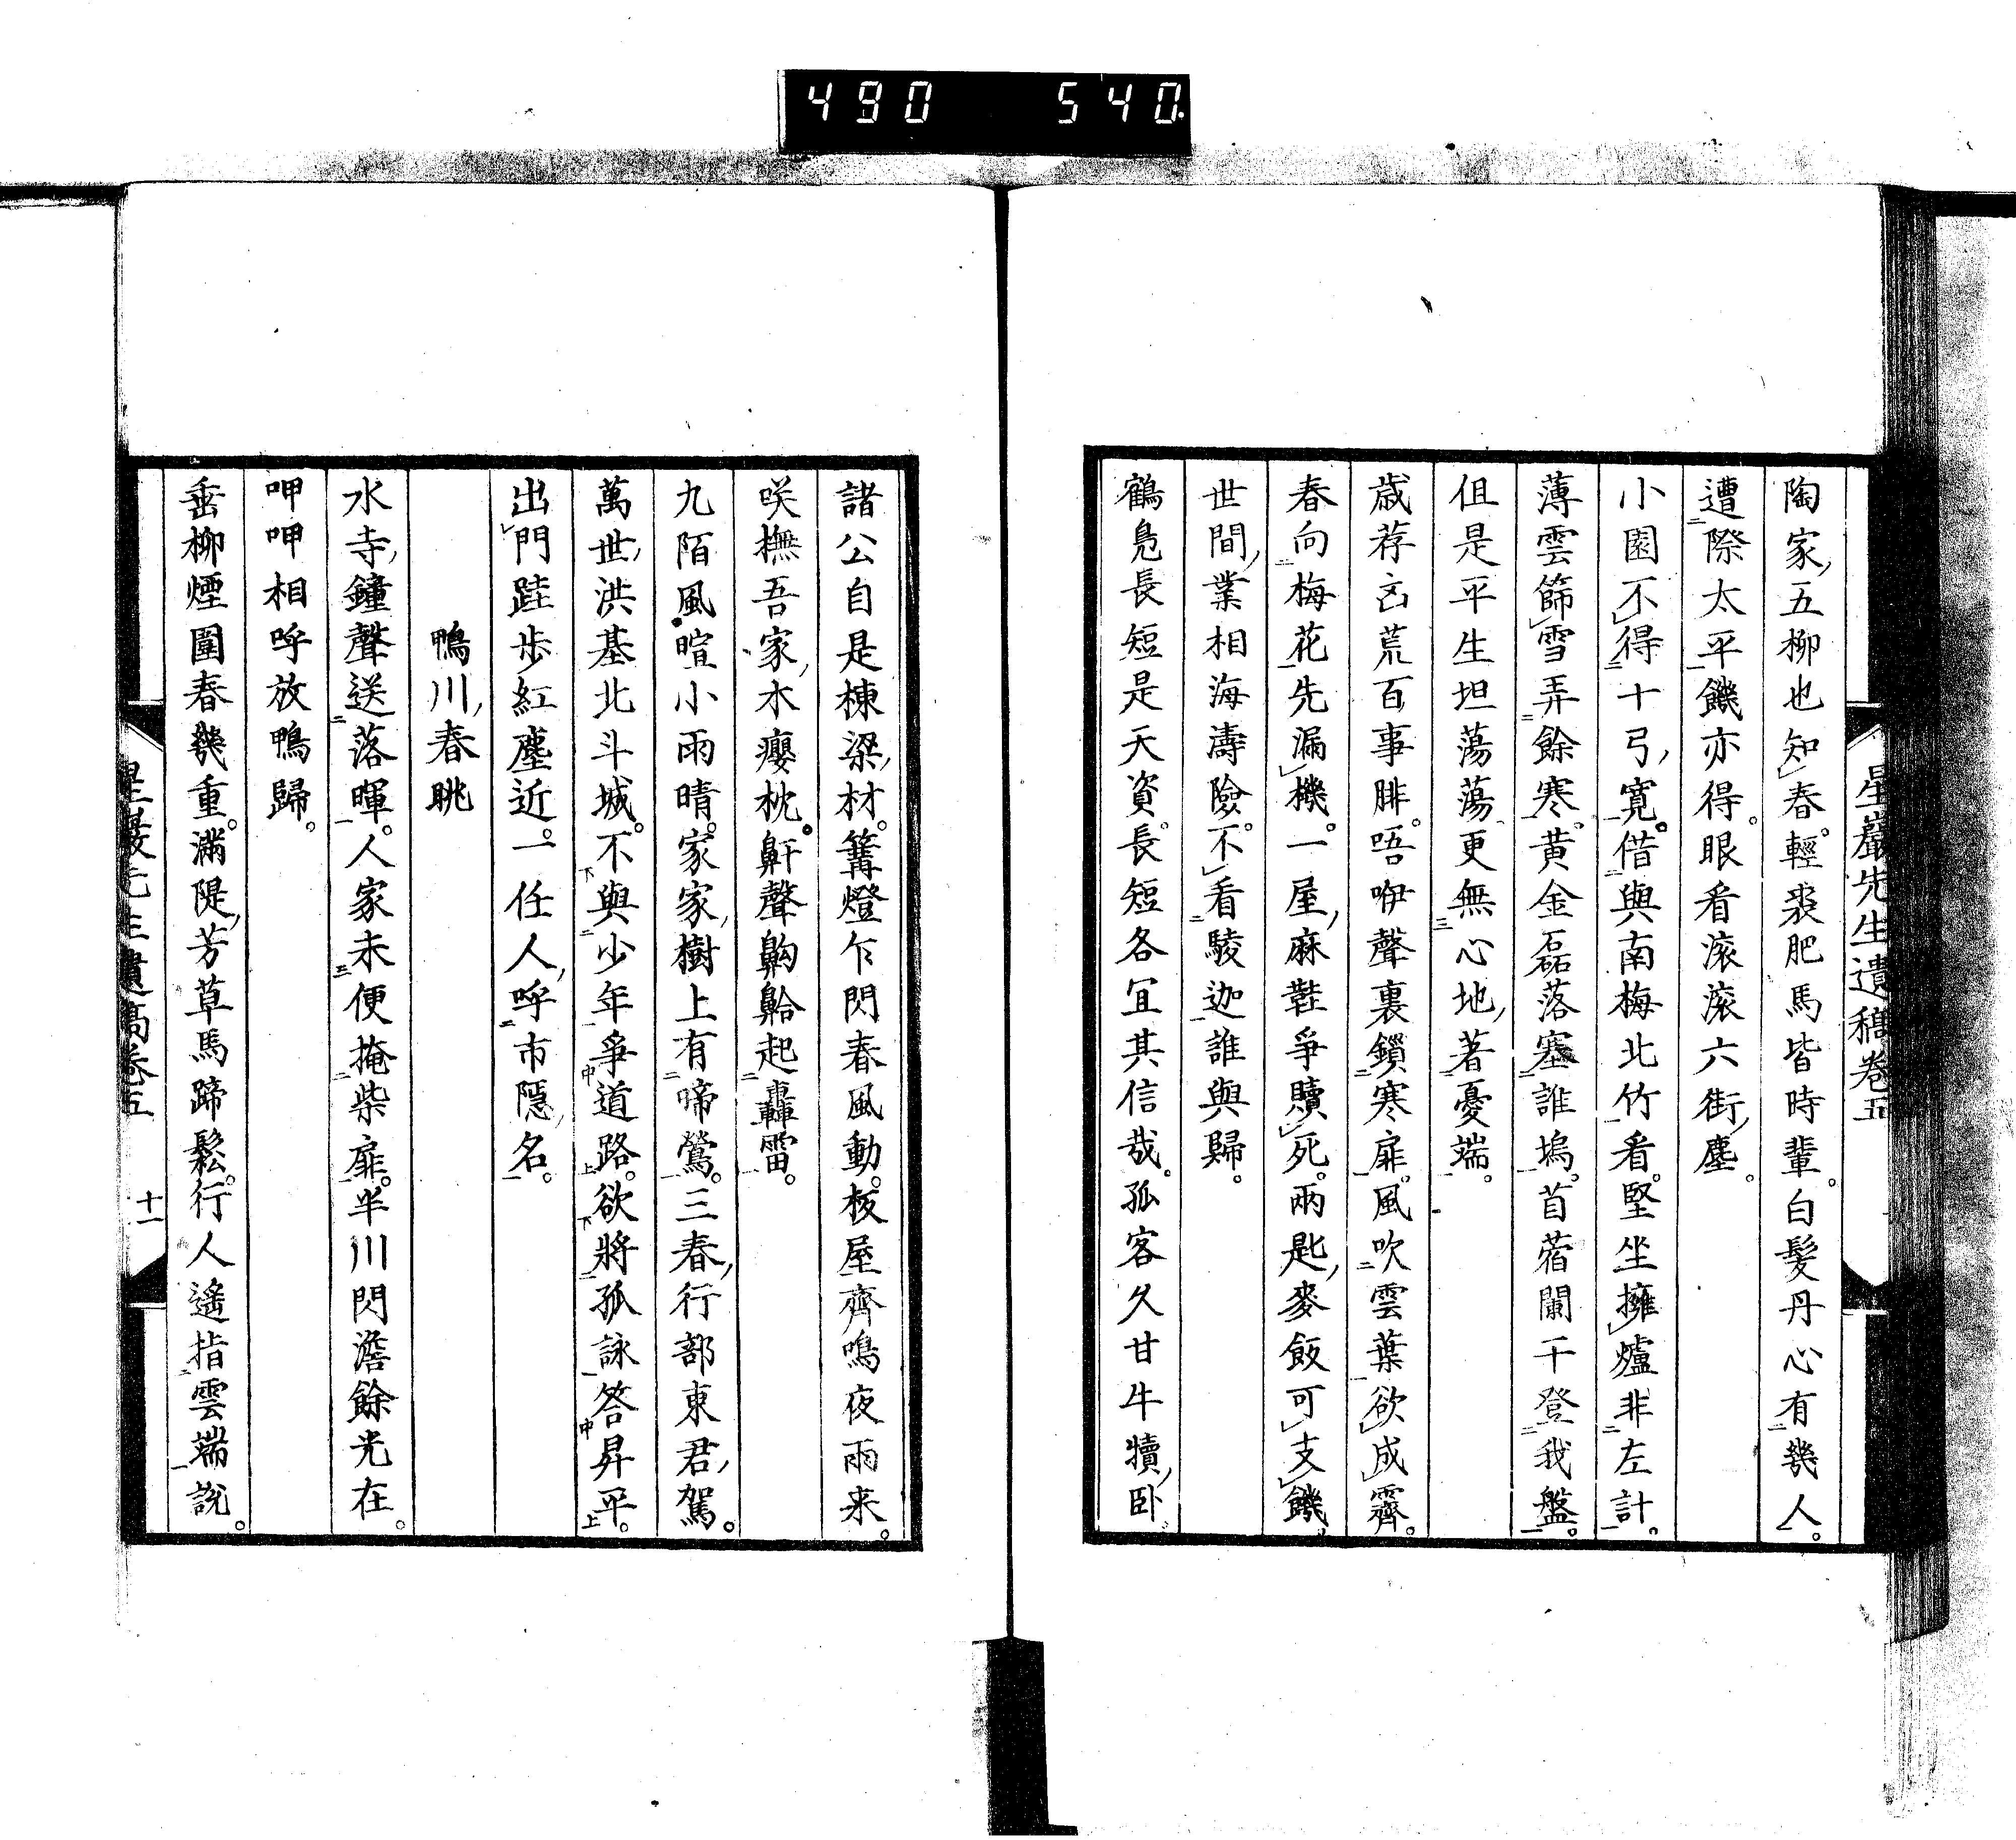 490 540
星巖先生遺稿卷五
陶家五柳也知春。輕裘肥馬皆時輩。白髮丹心有幾人。
遭際太平饑亦得。眼看滚滚六街塵。
小園不得十弓寬。借與南梅北竹看。堅坐擁爐非左計。
薄雲篩雪弄餘寒。黃金磊落塞誰塢。苜蓿闌干登我盤。
但是平生坦蕩蕩更無心地著憂端。
歳荐凶荒百事腓。唔咿聲裏鎖寒扉。風吹雲葉欲成霽。
春向梅花先漏機。一屋麻鞋爭贖死。兩匙麥飯可支饑。
世間業相海濤險。不看駿迦誰與歸。
鶴鳧長短是天資。長短各冝其信哉。孤客久甘牛犢卧。
諸公自是棟梁材。篝燈乍閃春風動。板屋齊鳴夜雨来。
咲撫吾家木癭枕。鼾聲齁鮯起轟雷。
九陌風暄小雨晴。家家樹上有啼鶯。三春行部東君駕。
萬世洪基北斗城。不與少年爭道路。欲將孤詠答昇平。
出門跬步紅塵近。一任人呼市隱名。
鴨川春眺
水寺鐘聲送落暉。人家未便掩柴扉。半川閃澹餘光在。
呷呷相呼放鴨歸。
垂柳煙圍春幾重。滿隄芳草馬蹄鬆。行人遙指雲端說。
星巖先生遺稿卷五 十一